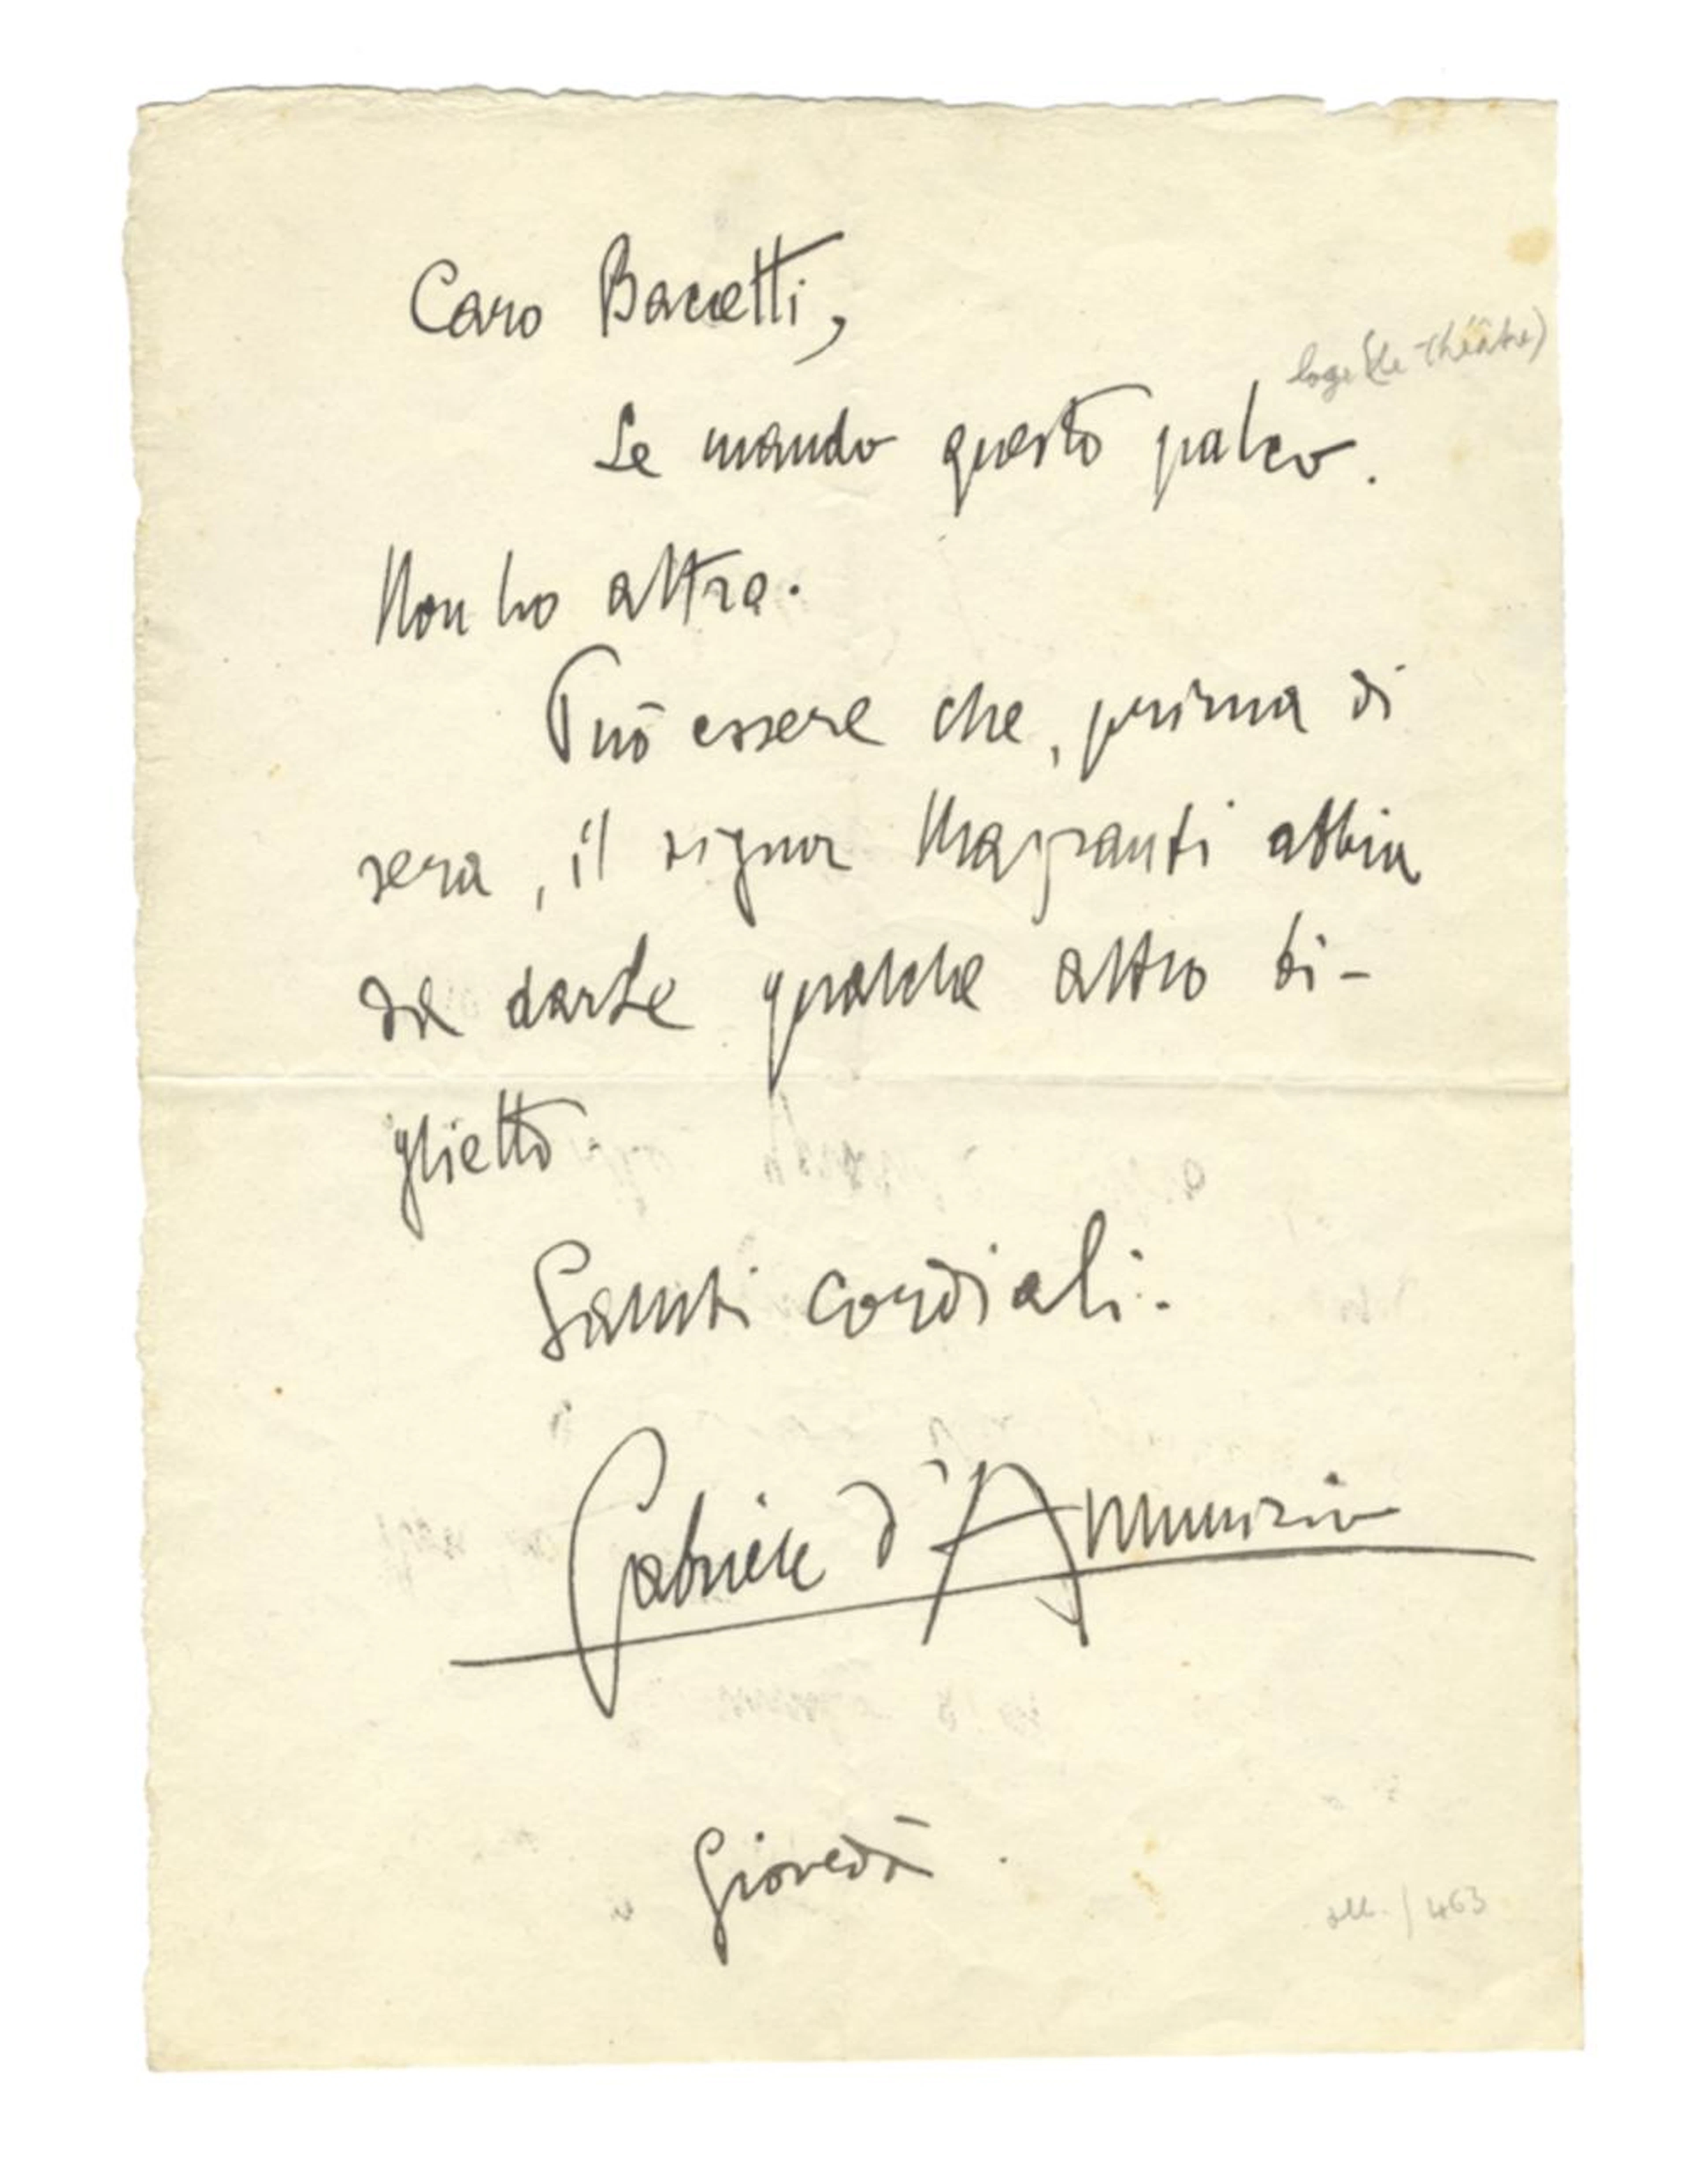 Caro Baccetti,
loge (de théâtre)
Le mando questo palco.
Non ho altro.
Può essere che, prima di
sera, il signor abbia
da darLe qualche altro bi-
glietto
Saluti cordiali.
Gabriele d'Annunzio
Giovedì.
463